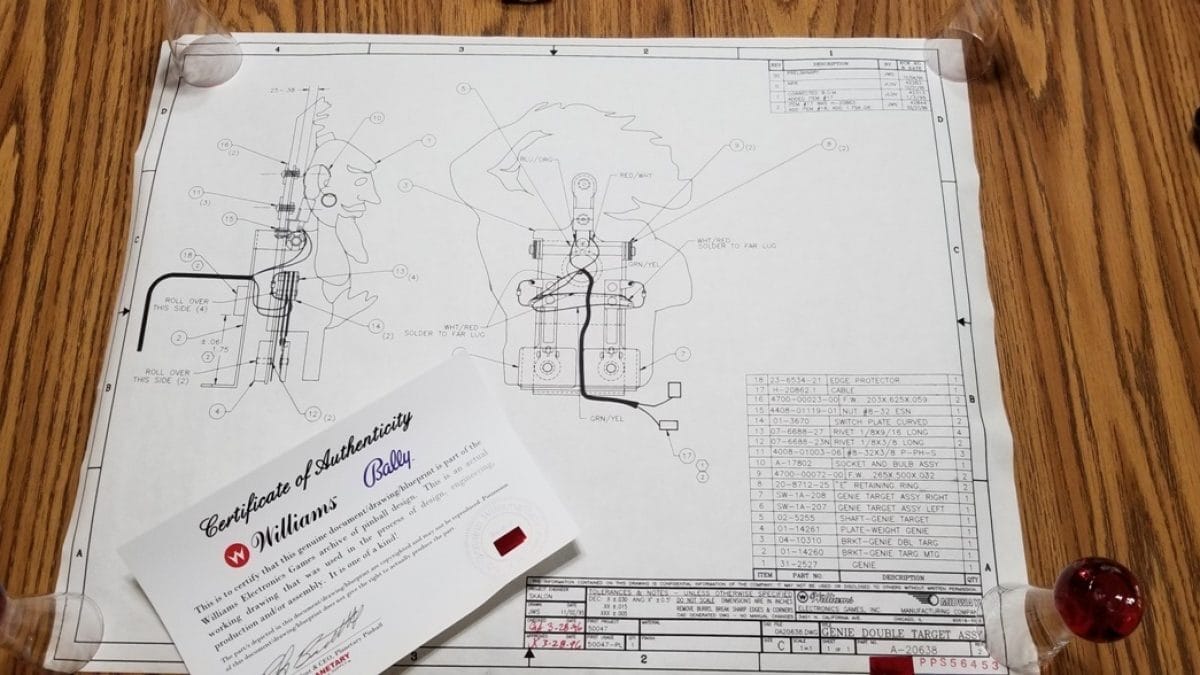 4 3 2 1
REV DESCRIPTION BY
PRELIMINARY
D
D
.25-.38
5
10
1
9 (2)
8 (2)
16
(2)
BLU/ORG
RED/WHT
3
11
(3)
15
C
C
WHT/RED
SOLDER TO FAR LUG
18
2
GRN/YEL
13 (4)
ROLL OVER
THIS SIDE (4)
14
(2)
WHT/RED
SOLDER TO FAR LUG
2
±.06
1.75
2
7
ROLL OVER
THIS SIDE (2)
B
B
4
12 (2)
GRN/YEL
17
1
2
18 23-6534-21 EDGE PROTECTOR 1
17 H-20862.1 CABLE 1
16 4700-00023-00 F.W. .203X.625X.059 2
15 4408-01119-01 NUT #8-32 ESN 1
14 01-3670 SWITCH PLATE CURVED 2
13 07-6688-27 RIVET 1/8X9/16 LONG 4
12 07-6688-23N RIVET 1/8X3/8 LONG 2
11 4008-01003-06 #8-32X3/8 P-PH-S 3
10 A-17802 SOCKET AND BULB ASSY 1
9 4700-00072-00 F.W. .265X.500X.032 2
8 20-8712-25 "E" RETAINING RING 2
7 SW-1A-208 GENIE TARGET ASSY RIGHT 1
6 SW-1A-207 GENIE TARGET ASSY LEFT 1
5 02-5255 SHAFT-GENIE TARGET 1
4 01-14261 PLATE-WEIGHT GENIE 1
3 04-10310 BRKT-GENIE DBL TARG 1
2 01-14260 BRKT-GENIE TARG MTG 1
1 31-2527 GENIE 1
ITEM PART NO DESCRIPTION QTY
A
A
Certificate of Authenticity
W Williams Bally
This is to certify that this genuine document/drawing/blueprint is part of the
Williams Electronics Games archive of pinball design. This is an actual
working drawing that was used in the process of design, engineering,
production and/or assembly. It is one of a kind!
The part/s depicted in this document/drawing/blueprint are copyrighted and may not be reproduced. Possession
of this document/drawing/blueprint does not give any right to actually produce the part.
& CEO, Planetary Pinball
ANETARY
THE INFORMATION CONTAINED ON THIS DRAWING IS CONFIDENTIAL INFORMATION OF THE COMPANY. IT MAY NOT BE USED OR DISCLOSED TO OTHERS WITHOUT WRITTEN PERMISSION.
PROJECT ENGINEER
SKALON
TOLERANCES & NOTES - UNLESS OTHERWISE SPECIFIED
DO NOT SCALE DIMENSIONS ARE IN INCHES
REMOVE BURRS, BREAK SHARP EDGES & CORNERS
.XX ±.015
.XXX ±.005
Williams
ELECTRONICS GAMES, INC.
MIDWAY
MANUFACTURING COMPANY
DRAWN DATE
JWS 11/02/95
3-28-96
3-28-96
FIRST PROJECT
50047
MATERIAL
FIRST USAGE
50047-PL
QTY
1
FINISH
CAD FILE
0A20638.DWG
GENIE DOUBLE TARGET ASSY
SIZE
C
SCALE
1=1
SHEET
1 OF 1
PART NO.
A-20638
3 2
PPS56453